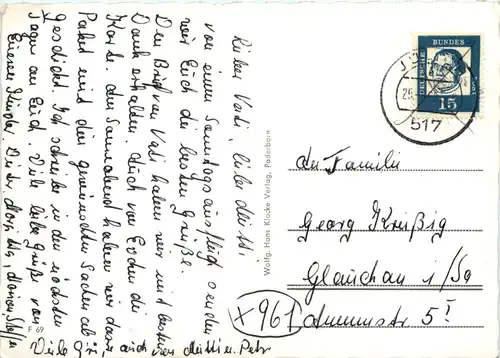 Lieber Vati, liebe Mutti.
von einem Sonntagsausflug senden
wir Euch die besten Grüße.
Den Brief von Vati haben wir mit bestem
Dank erhalten. Auch von Euch die
Karte. Am Sonnabend haben wir das
Paket mit den gewünschten Sachen ab
geschickt. Ich schreibe in den nächsten
Tagen an Euch. Viele liebe Grüße von
Viele Grüße auch von Mutti u. Petr
F 69
Wolfg. Hans Klocke Verlag, Paderborn
DEUTSCHE
BUNDES
15
517
An Familie
Georg Kreßig
Glauchau i/Sa
Ammonstr 5 I
X 961